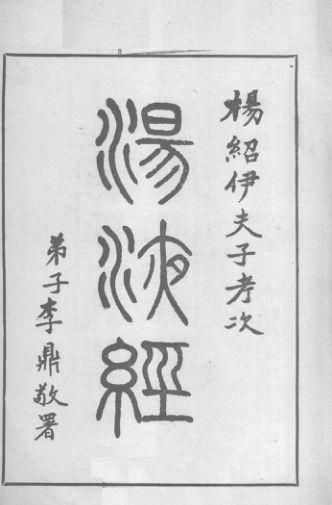 楊紹伊夫子考次
湯液經
弟子李鼎敬署